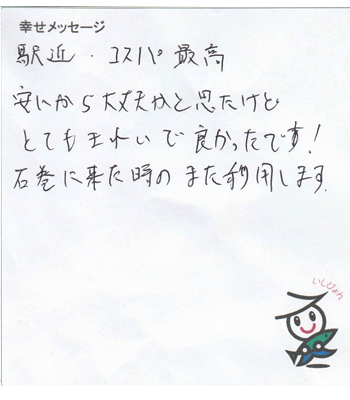 幸せメッセージ
駅近・コスパ最高
安いから大丈夫かと思たけど
とてもきれいで良かったです！
石巻に来た時のまた利用します
いしぴょん